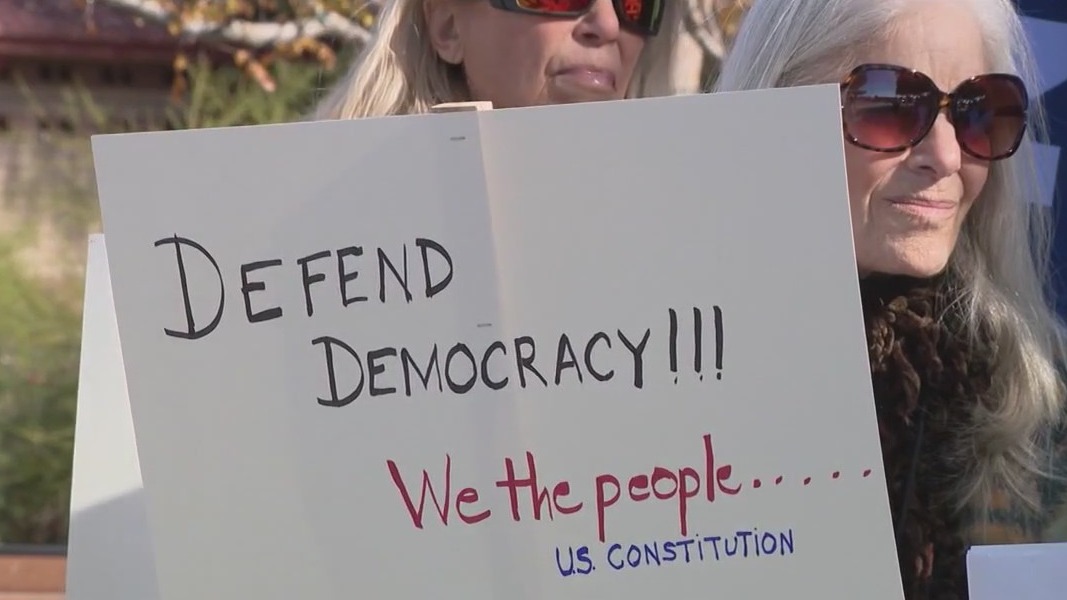 DEFEND
DEMOCRACY!!!
We the people.....
U.S. CONSTITUTION